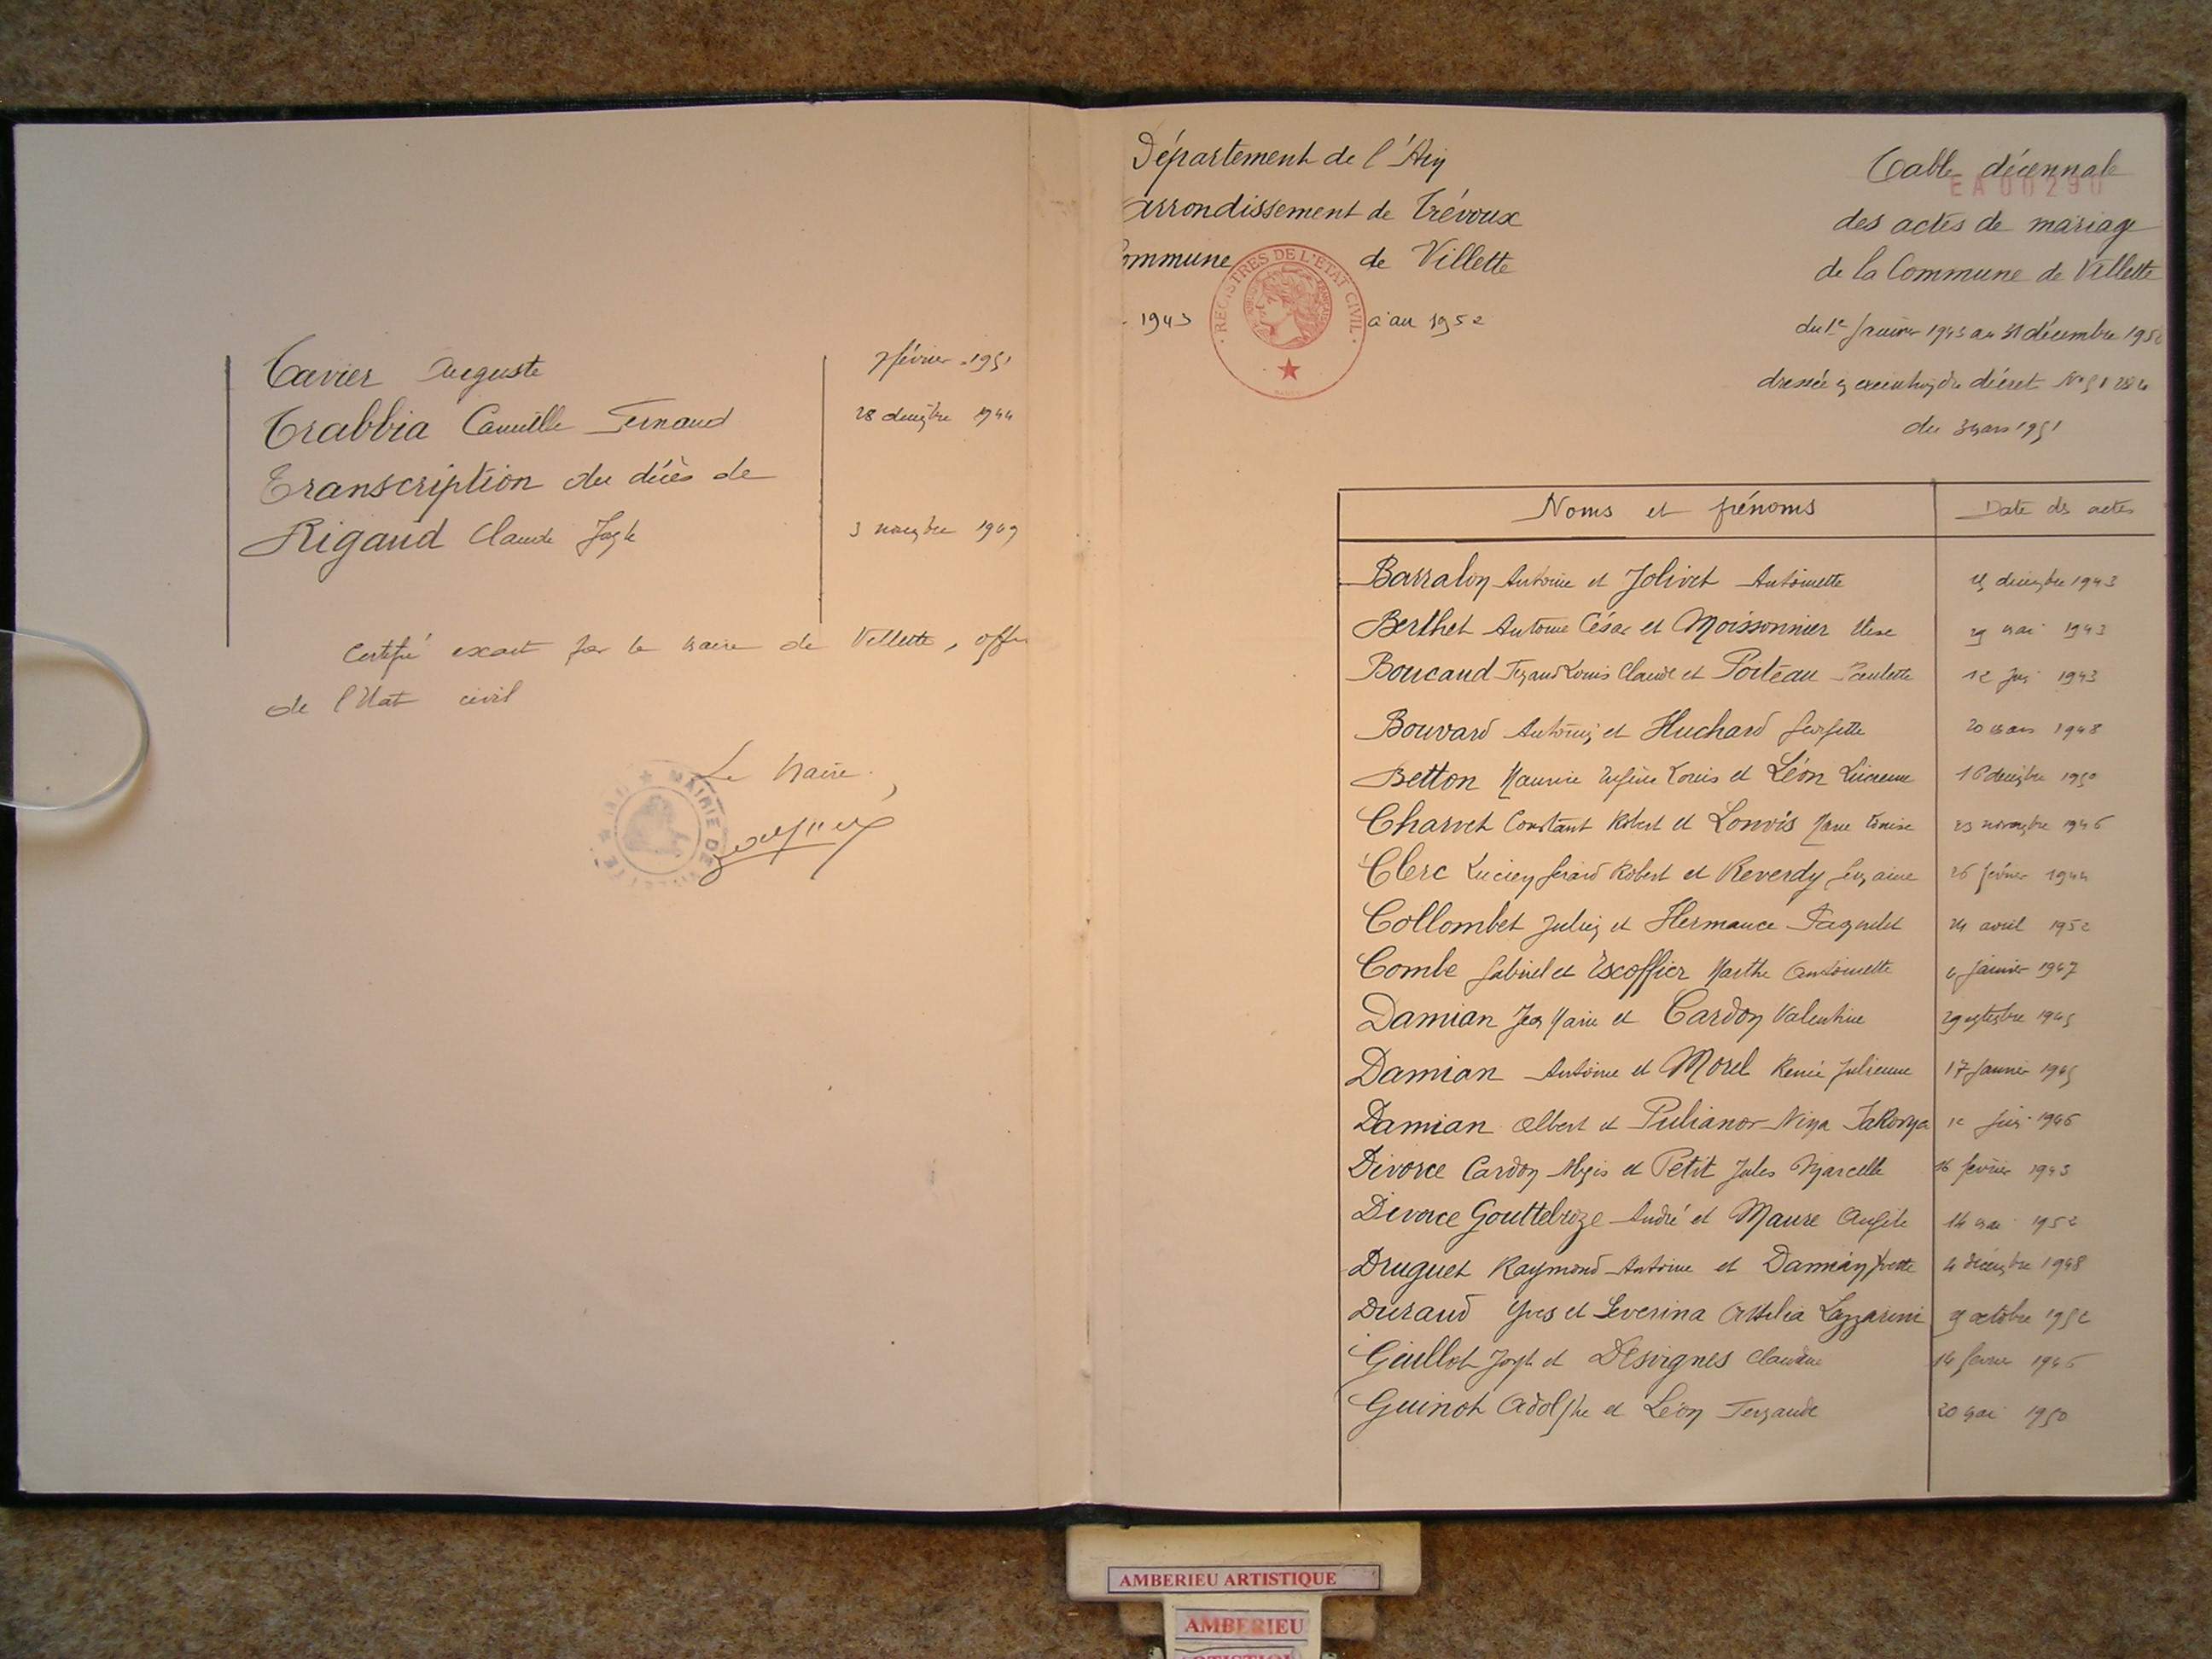 Tavier Auguste 7 février 1951
Trabbia Camille Fernand 28 décembre 1944
Transcription du décès de
Rigaud Claude Joseph 3 novembre 1949
Certifié exact par le maire de Villette, offi
de l'Etat civil
Le Maire,
MAIRIE DE
Département de l'Ain
arrondissement de Trévoux
ommune de Villette
1943 à au 1952
REGISTRES DE L'ETAT CIVIL
Table décennale
EA00290
des actes de mariage
de la Commune de Villette
du 1er Janvier 1943 au 31 décembre 195
dressée en exécution du décret No 51 284
du 3 mars 1951
Noms et prénoms Date des actes
Barralon Antoine et Jolivet Antoinette décembre 1943
Berthet Antoine César et Moissonnier Elise 29 mai 1943
Boucaud Fernand Louis Claude et Poiteau Paulette 12 Juin 1943
Bouvard Antonin et Huchard Georgette 20 mars 1948
Betton Maurice Eugène Louis et Léon Lucienne 16 décembre 1950
Charvet Constant Robert et Lonvis Marie Louise 23 novembre 1946
Clerc Lucien Gérard Robert et Reverdy Germaine 26 février 1944
Collombet Julien et Hermance Paquelet 24 avril 1952
Combe Gabriel et Escoffier Marthe Antoinette 4 Janvier 1947
Damian Jean Marie et Cardon Valentine 29 septembre 1945
Damian Antoine et Morel Renée Julienne 17 Janvier 1945
Damian Albert et Pulianor Nina 12 Juin 1946
Divorce Cardon Alexis et Petit Jules Marcelle 16 février 1943
Divorce Gouttebroze André et Maure Angèle 14 mai 1952
Druguet Raymond Antoine et Damian Yvette 4 décembre 1948
Durand Yves et Severina Attilia Lazzarini 9 octobre 1952
Guillot Joseph et Desvignes Claudine 14 février 1946
Guinot Adolphe et Léon Fernande 20 mai 1950
AMBERIEU ARTISTIQUE
AMBERIEU